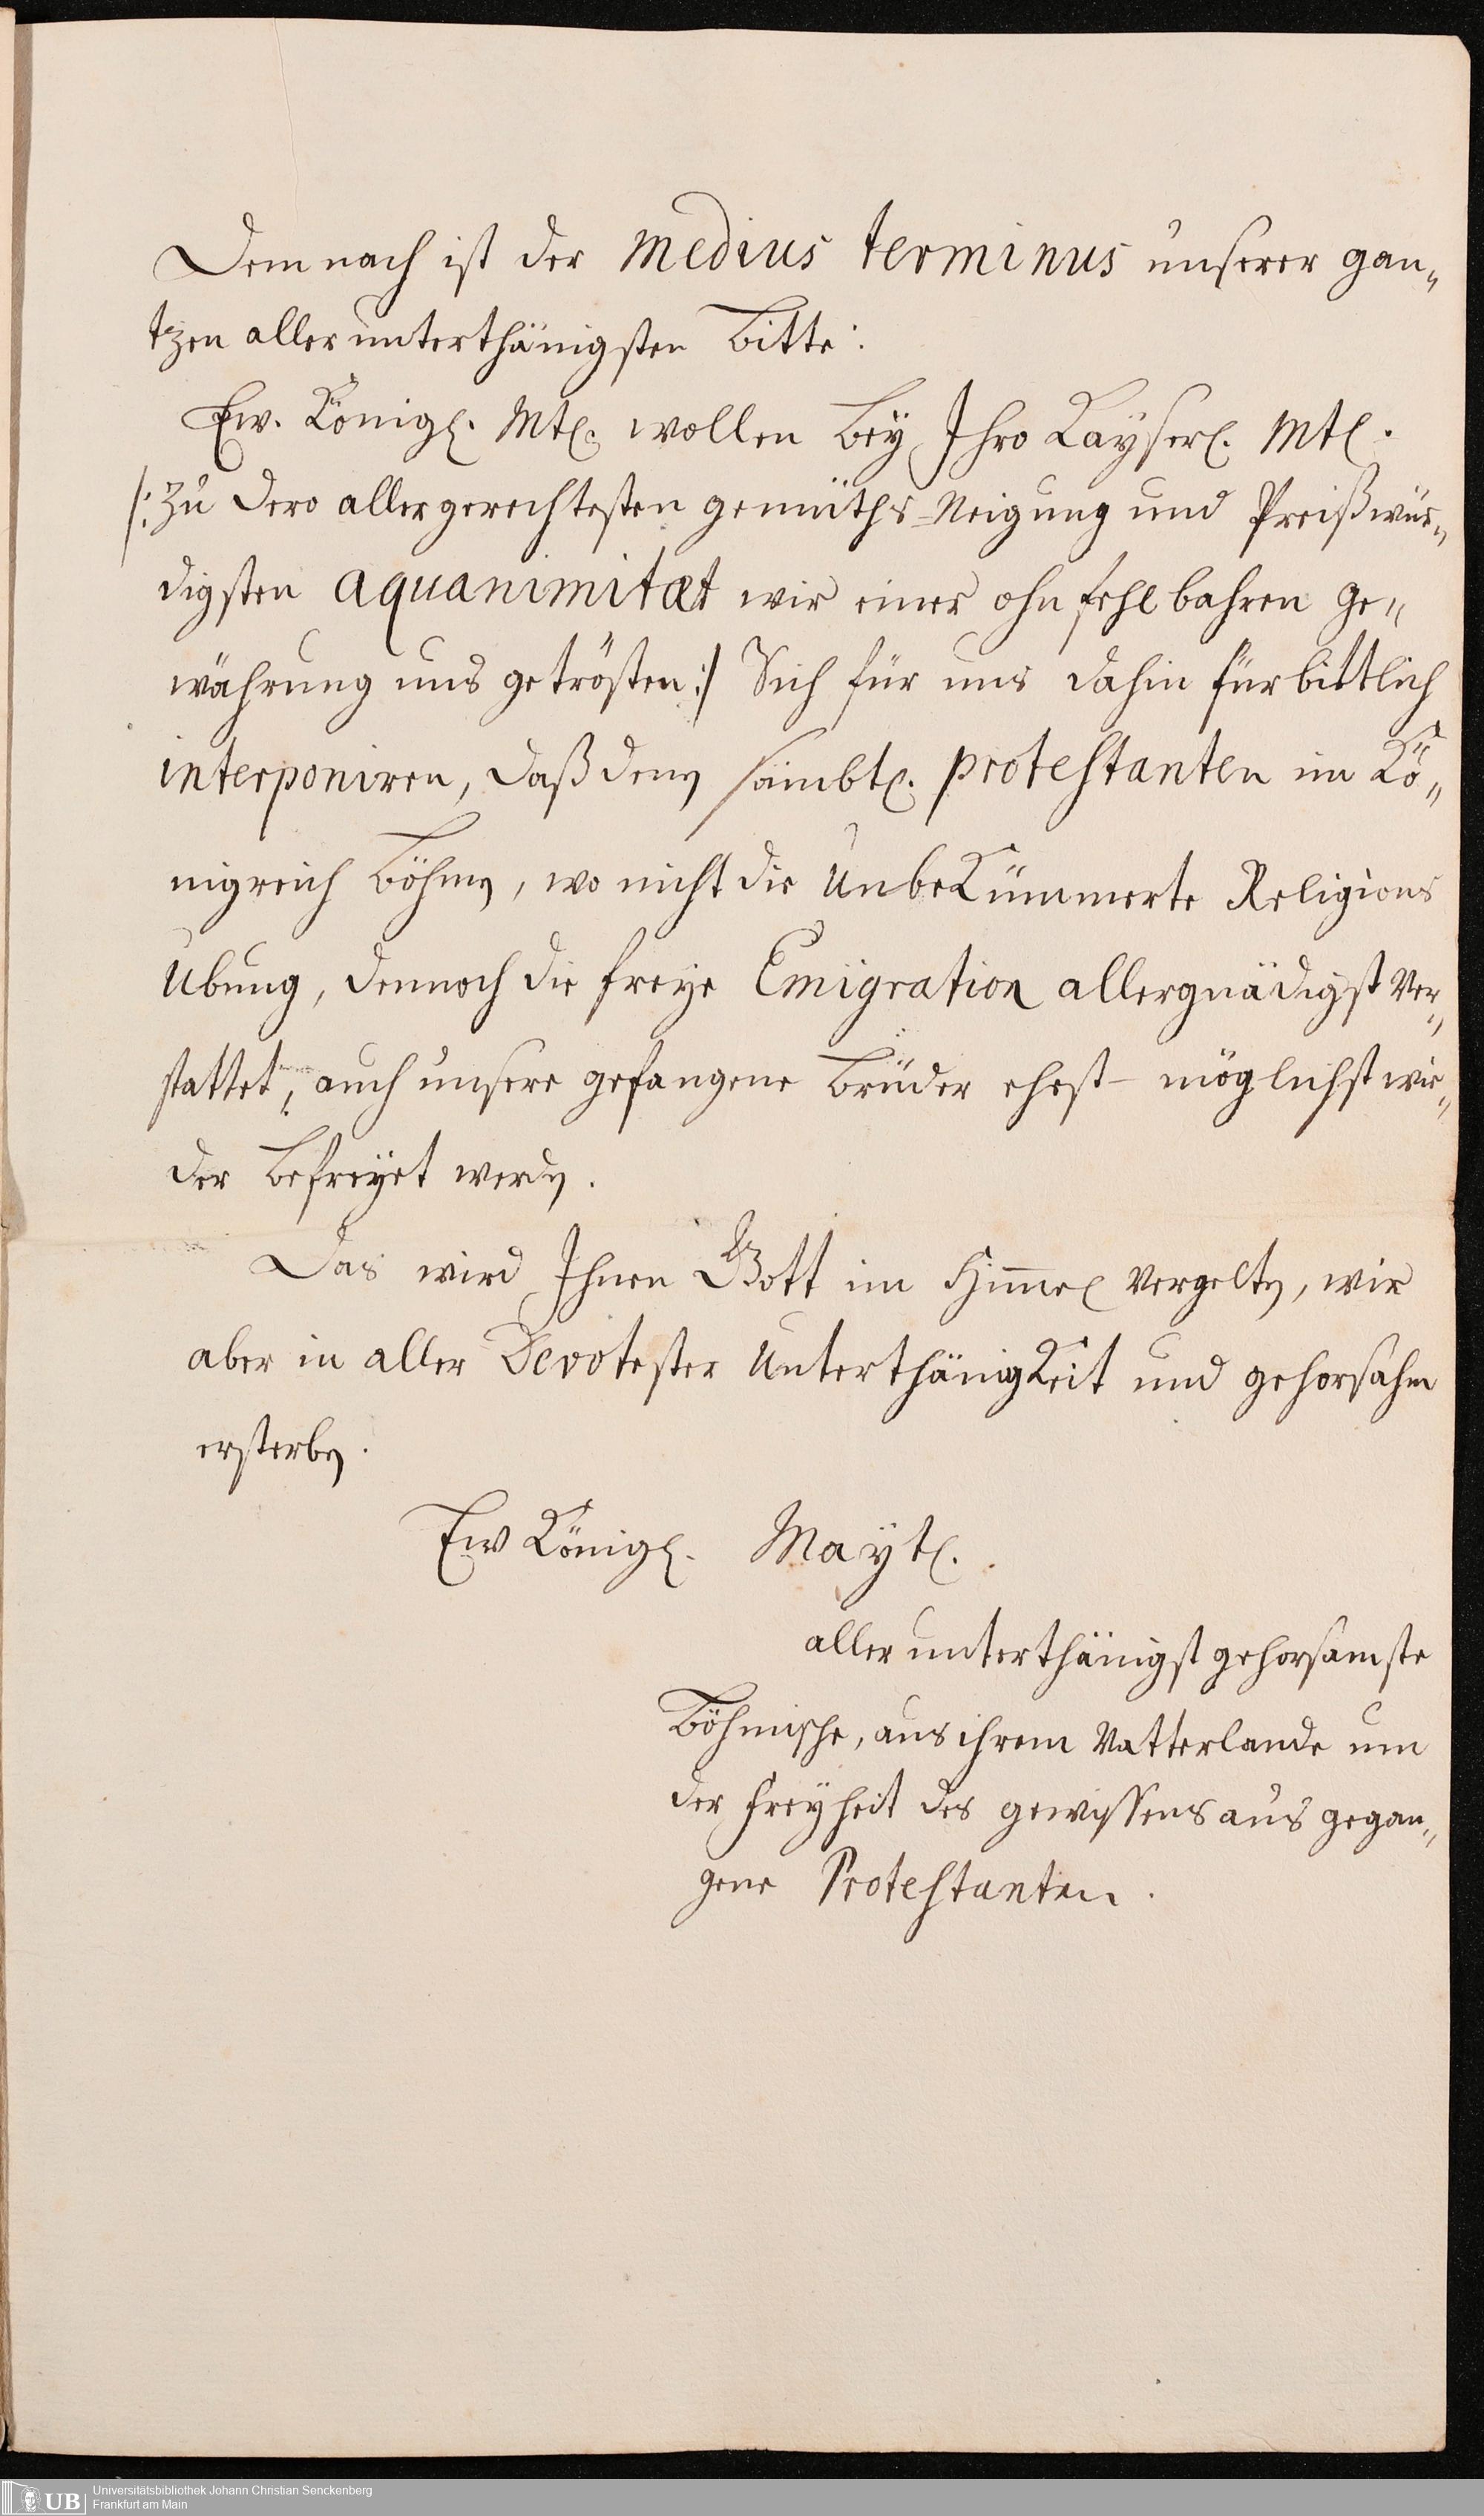 Demnach ist der Medius terminus unserer gan„
tzen allerunterthänigsten Bitte:
Ew. Königl. Mtl. wollen bey Ihro Kayserl. Mtl.
/: Zu dero allergerechtesten gemüths-Neigung und Preißwür„
digsten aquanimitæt wir einer ohnfehlbahren Ge„
währung uns getrösten :/ Sich für uns dahin fürbittlich
interponiren, daß denen sämbtl. protestanten im Kö„
nigreich Böhmen, wo nicht die UnbeKümmerte Religions
Ubung, dennoch die freye Emigration allergnädigst Ver„
stattet, auch unsere gefangene Brüder ehest-möglichst wie„
der befreyet werden.
Das wird Ihnen Gott im Himmel Vergelten, wir
aber in aller Devotester UnterthänigKeit und gehorsahm
ersterben.
Ew Königl. Maytl.
allerunterthänigst gehorsamste
Böhmische, aus ihrem Vatterlande um
der Freyheit des gewissens ausgegan„
gene Protestanten.
UB Universitätsbibliothek Johann Christian Senckenberg
Frankfurt am Main